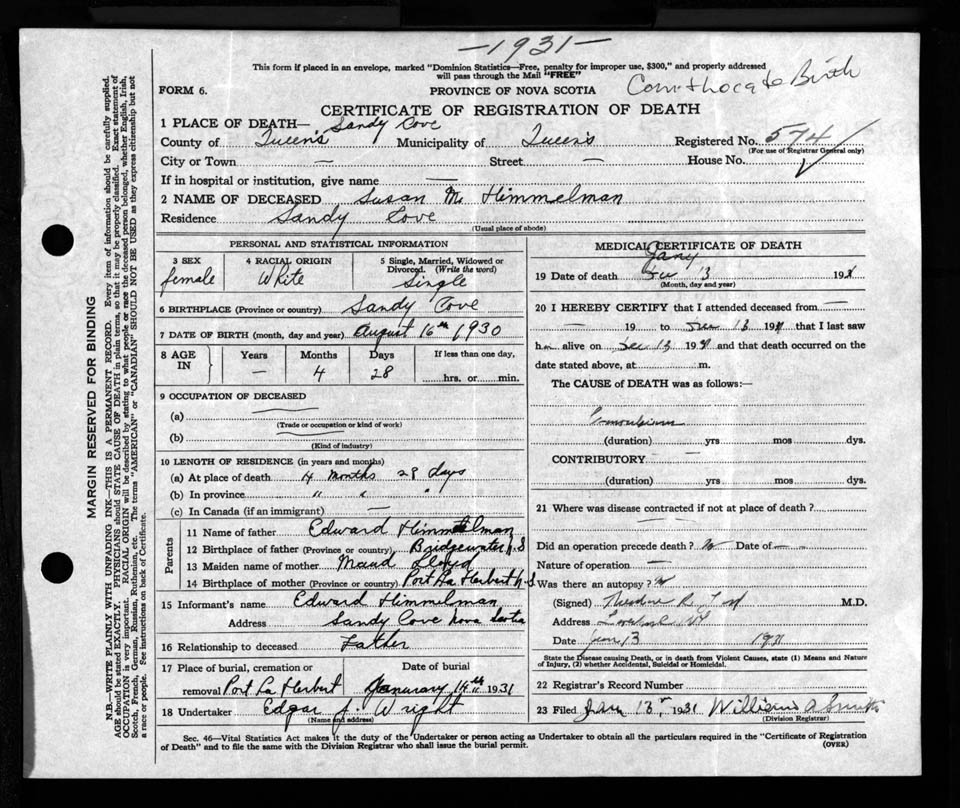 —1931—
This form if placed in an envelope, marked "Dominion Statistics—Free, penalty for improper use, $300," and properly addressed
will pass through the Mail "FREE"
FORM 6.
PROVINCE OF NOVA SCOTIA
Birth
CERTIFICATE OF REGISTRATION OF DEATH
1 PLACE OF DEATH— Sandy Cove
County of Queen's Municipality of Queen's Registered No. 574
(For use of Registrar General only)
City or Town — Street — House No.
If in hospital or institution, give name —
2 NAME OF DECEASED Susan M. Himmelman
Residence Sandy Cove
(Usual place of abode)
PERSONAL AND STATISTICAL INFORMATION
3 SEX
female
4 RACIAL ORIGIN
White
5 Single, Married, Widowed or
Divorced. (Write the word)
Single
6 BIRTHPLACE (Province or country) Sandy Cove
7 DATE OF BIRTH (month, day and year) August 16th 1930
8 AGE IN
Years
—
Months
4
Days
28
If less than one day,
hrs. or min.
9 OCCUPATION OF DECEASED
(a)
(Trade or occupation or kind of work)
(b)
(Kind of industry)
10 LENGTH OF RESIDENCE (in years and months)
(a) At place of death 4 months 28 days
(b) In province " " "
(c) In Canada (if an immigrant) —
Parents
11 Name of father Edward Himmelman
12 Birthplace of father (Province or country) Bridgewater N.S
13 Maiden name of mother Maud Lloyd
14 Birthplace of mother (Province or country) Port La Herbert N-S
15 Informant's name Edward Himmelman
Address Sandy Cove Nova Scotia
16 Relationship to deceased Father
17 Place of burial, cremation or
removal Port La Herbert
Date of burial
January 14th 1931
18 Undertaker Edgar J. Wright
(Name and address)
MEDICAL CERTIFICATE OF DEATH
Jany
19 Date of death 13 19
(Month, day and year)
20 I HEREBY CERTIFY that I attended deceased from —
— 19 to 13 19 that I last saw
h alive on 13 19 and that death occurred on the
date stated above, at m.
The CAUSE of DEATH was as follows:—
(duration) yrs mos dys.
CONTRIBUTORY
(duration) yrs mos dys.
21 Where was disease contracted if not at place of death?
Did an operation precede death? No Date of —
Nature of operation —
Was there an autopsy? No
(Signed) M.D.
Address
Date Jan 13 19
State the Disease causing Death, or in death from Violent Causes, state (1) Means and Nature
of Injury, (2) whether Accidental, Suicidal or Homicidal.
22 Registrar's Record Number
23 Filed Jan 13, 1931 William A Smith
(Division Registrar)
Sec. 46—Vital Statistics Act makes it the duty of the Undertaker or person acting as Undertaker to obtain all the particulars required in the "Certificate of Registration
of Death" and to file the same with the Division Registrar who shall issue the burial permit.
(OVER)
MARGIN RESERVED FOR BINDING
N.B.—WRITE PLAINLY WITH UNFADING INK—THIS IS A PERMANENT RECORD. Every item of information should be carefully supplied.
AGE should be stated EXACTLY. PHYSICIANS should STATE CAUSE OF DEATH in plain terms, so that it may be properly classified. Exact statement of
OCCUPATION is very important. RACIAL ORIGIN will be described by stating to what people or race the deceased person belonged, whether English, Irish,
Scotch, French, German, Russian, Ruthenian, etc. The terms "AMERICAN" or "CANADIAN" SHOULD NOT BE USED as they express citizenship but not
a race or people. See instructions on back of Certificate.